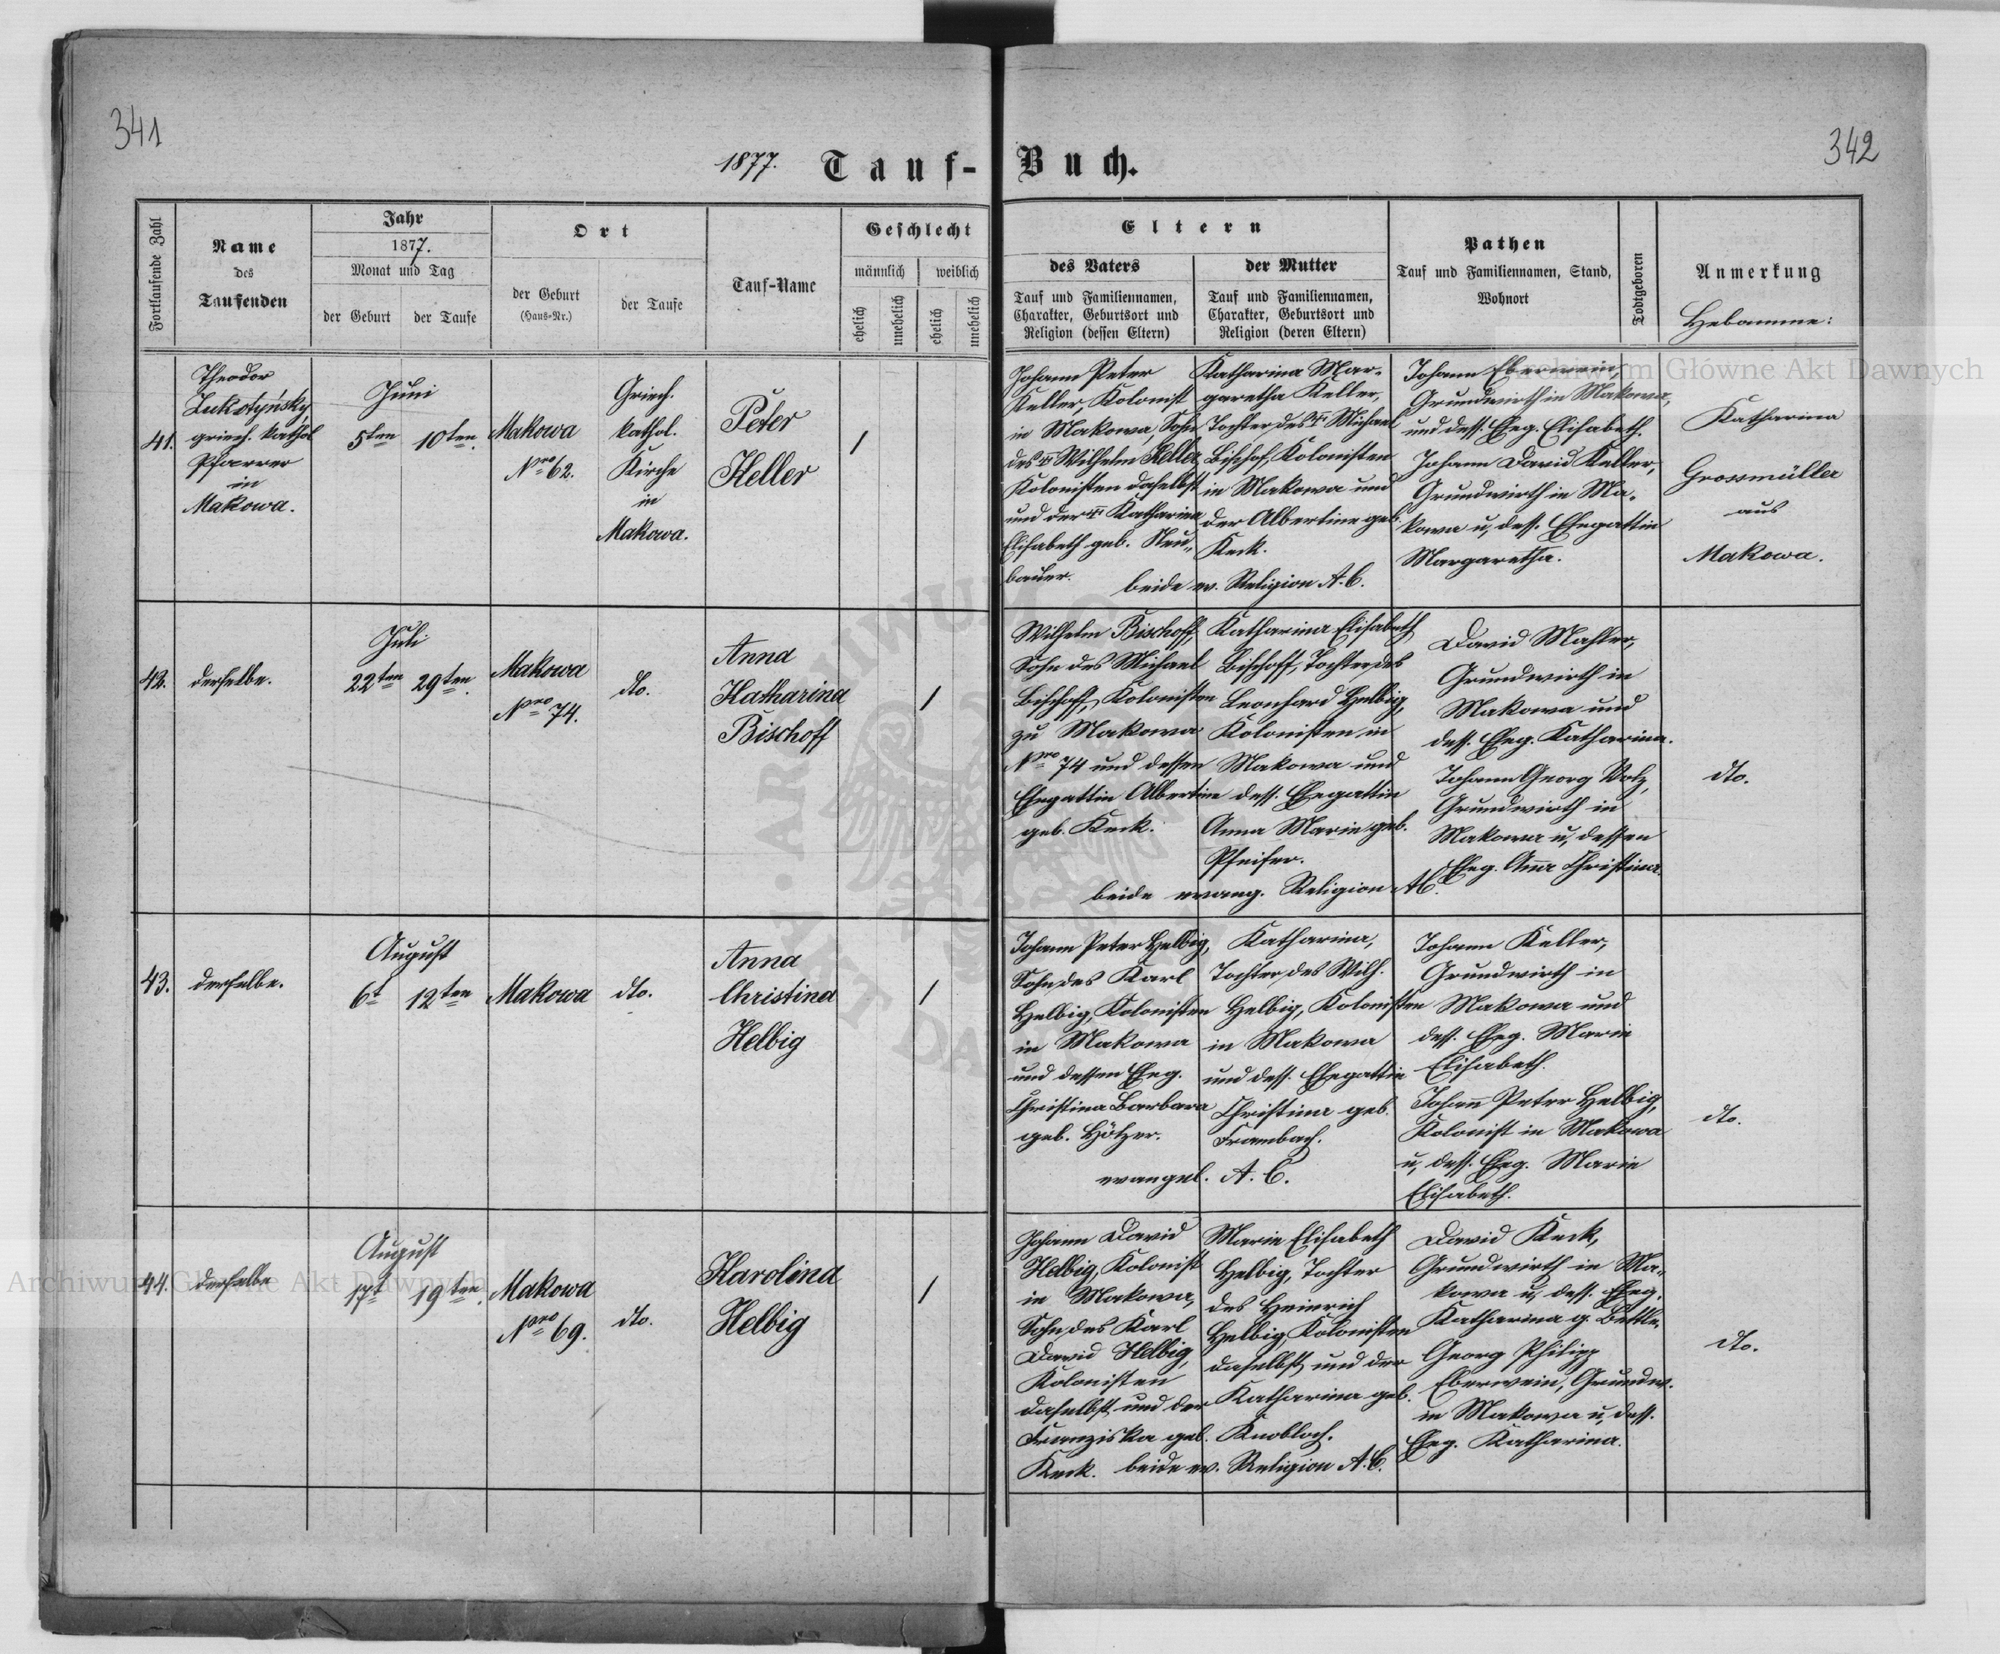 341
342
1877. Tauf-Buch.
Fortlaufende Zahl
Name
des
Taufenden
Jahr
1877.
Monat und Tag
der Geburt
der Taufe
Ort
der Geburt
(Haus-Nr.)
der Taufe
Tauf-Name
Geschlecht
männlich
weiblich
ehelich
unehelich
ehelich
unehelich
Eltern
des Vaters
Tauf und Familiennamen,
Charakter, Geburtsort und
Religion (dessen Eltern)
der Mutter
Tauf und Familiennamen,
Charakter, Geburtsort und
Religion (deren Eltern)
Pathen
Tauf und Familiennamen, Stand,
Wohnort
Todtgeboren
Anmerkung
Hebamme:
41.
Theodor
griech. kathol
Pfarrer
in
Makowa.
Juni
5ten
10ten.
Makowa
Nro 62.
Griech.
kathol.
Kirche
in
Makowa.
Peter
Keller
/
Johann Peter
Keller, Kolonist
in Makowa, Sohn
des Wilhelm Keller
Kolonisten daselbst
und der Katharina
Elisabeth geb. Neu-
bauer.
Katharina Mar-
garetha Keller,
Tochter des Michael
Bischof, Kolonisten
in Makowa und
der Albertine geb.
Keck.
beide ev. Religion A. C.
Johann Eberwein,
Grundwirth in Makowa,
und dess. Eheg. Elisabeth.
Johann David Keller,
Grundwirth in Ma-
kowa u, dess. Ehegattin
Margaretha.
Katharina
Grossmüller
aus
Makowa.
42.
derselbe.
Juli
22ten
29ten.
Makowa
Nro 74.
dto.
Anna
Katharina
Bischoff
/
Wilhelm Bischoff
Sohn des Michael
Bischoff, Kolonisten
zu Makowa
Nro 74 und dessen
Ehegattin Albertine
geb. Keck.
Katharina Elisabeth
Bischoff, Tochter des
Leonhard Helbig,
Kolonisten in
Makowa und
dess. Ehegattin
Anna Marie geb.
Pfeifer.
beide evang. Religion AC.
David Mahler,
Grundwirth in
Makowa und
dess. Eheg. Katharina.
Johann Georg Volz,
Grundwirth in
Makowa u, dessen
Eheg. Anna Christina.
dto.
43.
derselbe.
August
6t
12ten
Makowa
dto.
Anna
Christina
Helbig
/
Johann Peter Helbig,
Sohn des Karl
Helbig, Kolonisten
in Makowa
und dessen Eheg.
Christina Barbara
geb. Hötzer.
Katharina,
Tochter des Wilh.
Helbig, Kolonisten
in Makowa
und dess. Ehegattin
Christina geb.
Frambach.
evangel. A. C.
Johann Keller,
Grundwirth in
Makowa und
dess. Eheg. Marie
Elisabeth.
Johann Peter Helbig,
Kolonist in Makowa
u, dess. Eheg. Marie
Elisabeth.
dto.
44.
derselbe
August
17t
19ten.
Makowa
Nro 69.
dto.
Karolina
Helbig
/
Johann David
Helbig, Kolonist
in Makowa,
Sohn des Karl
David Helbig,
Kolonisten
daselbst und der
Franziska geb.
Keck.
Marie Elisabeth
Helbig, Tochter
des Heinrich
Helbig, Kolonisten
daselbst und der
Katharina geb.
Knobloch.
beide ev. Religion A. C.
David Keck,
Grundwirth in Ma-
kowa u, dess. Eheg.
Katharina g. Bettle.
Georg Philipp
Eberwein, Grundw.
in Makowa u, dess.
Eheg. Katharina.
dto.
Archiwum Główne Akt Dawnych
Archiwum Główne Akt Dawnych